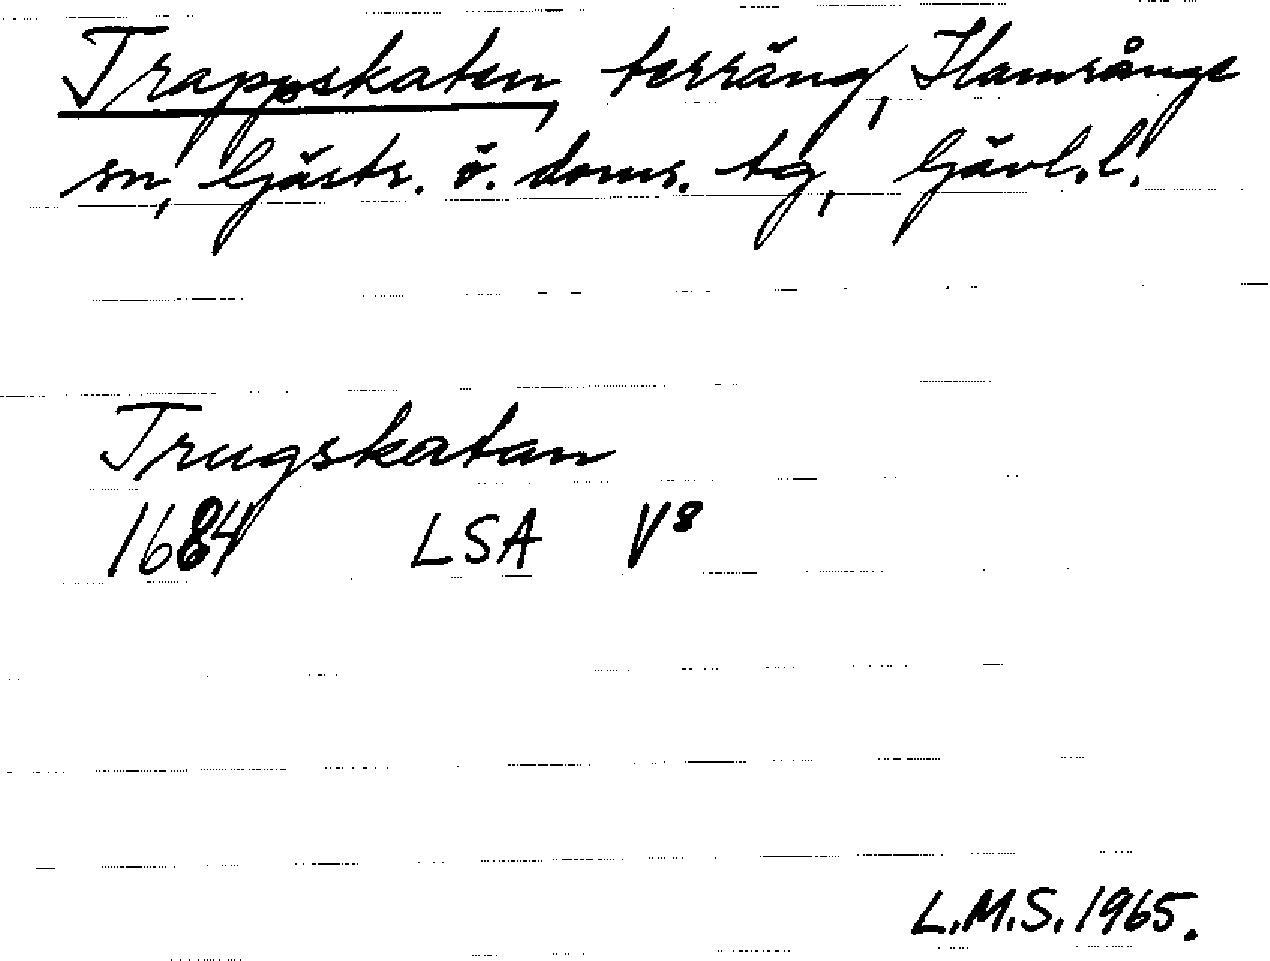 Trappskaten, terräng, Hamrånge
sn, Gästr. ö. doms. tg, Gävl. l.
Trugskatan
1684 LSA V⁸
L.M.S. 1965.